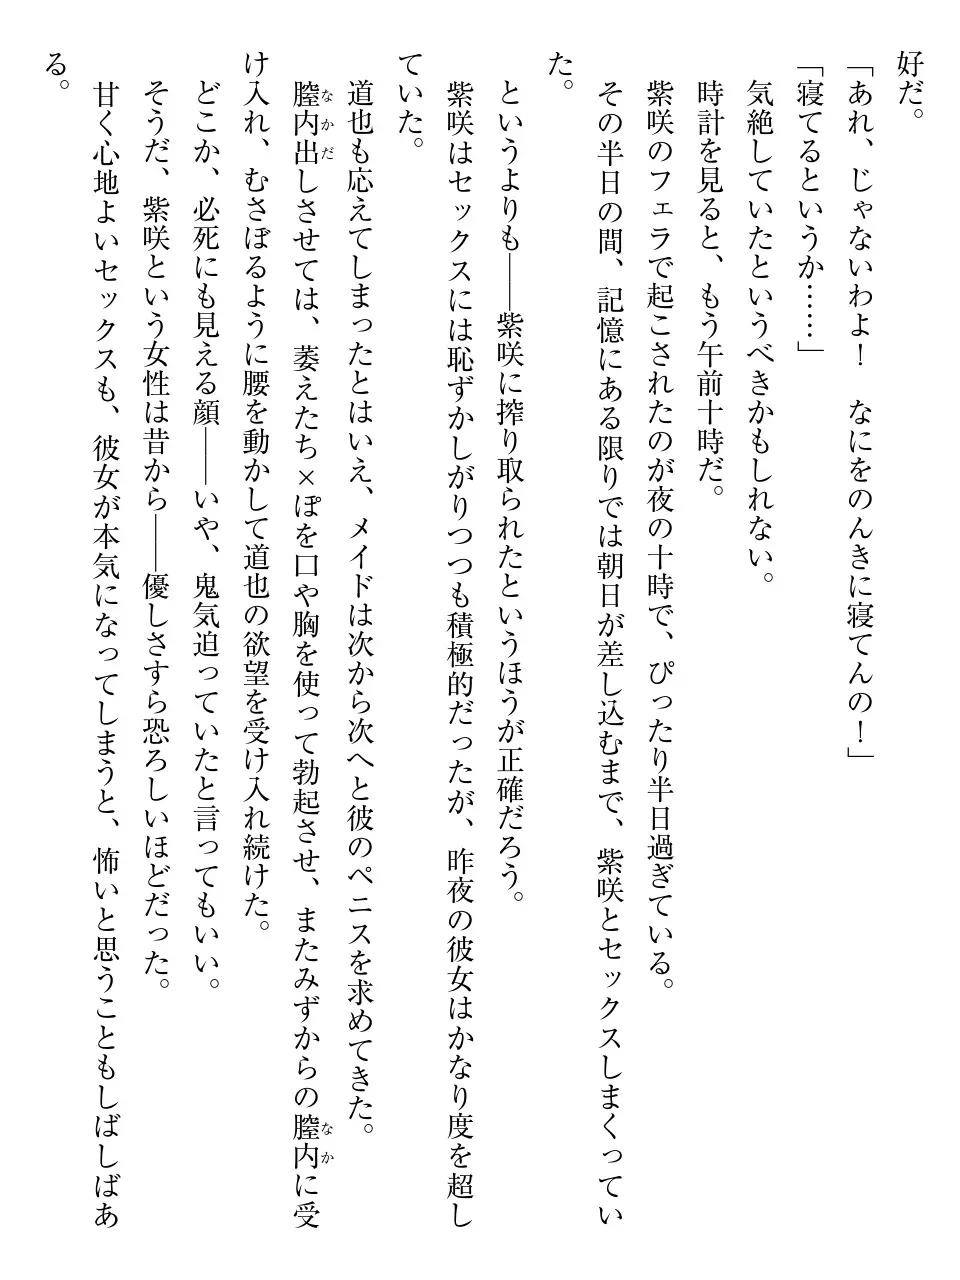 好だ。
「あれ、じゃないわよ！　なにをのんきに寝てんの！」
「寝てるというか……」
　気絶していたというべきかもしれない。
　時計を見ると、もう午前十時だ。
　紫咲のフェラで起こされたのが夜の十時で、ぴったり半日過ぎている。
　その半日の間、記憶にある限りでは朝日が差し込むまで、紫咲とセックスしまくってい
た。
　というよりも――紫咲に搾り取られたというほうが正確だろう。
　紫咲はセックスには恥ずかしがりつつも積極的だったが、昨夜の彼女はかなり度を超し
ていた。
　道也も応えてしまったとはいえ、メイドは次から次へと彼のペニスを求めてきた。
　膣内出しさせては、萎えたち×ぽを口や胸を使って勃起させ、またみずからの膣内に受
け入れ、むさぼるように腰を動かして道也の欲望を受け入れ続けた。
　どこか、必死にも見える顔――いや、鬼気迫っていたと言ってもいい。
　そうだ、紫咲という女性は昔から――優しさすら恐ろしいほどだった。
　甘く心地よいセックスも、彼女が本気になってしまうと、怖いと思うこともしばしばあ
る。